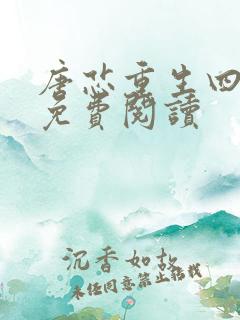 唐芯重生四
免費閱讀
沉香如故
未经同意禁止搭载